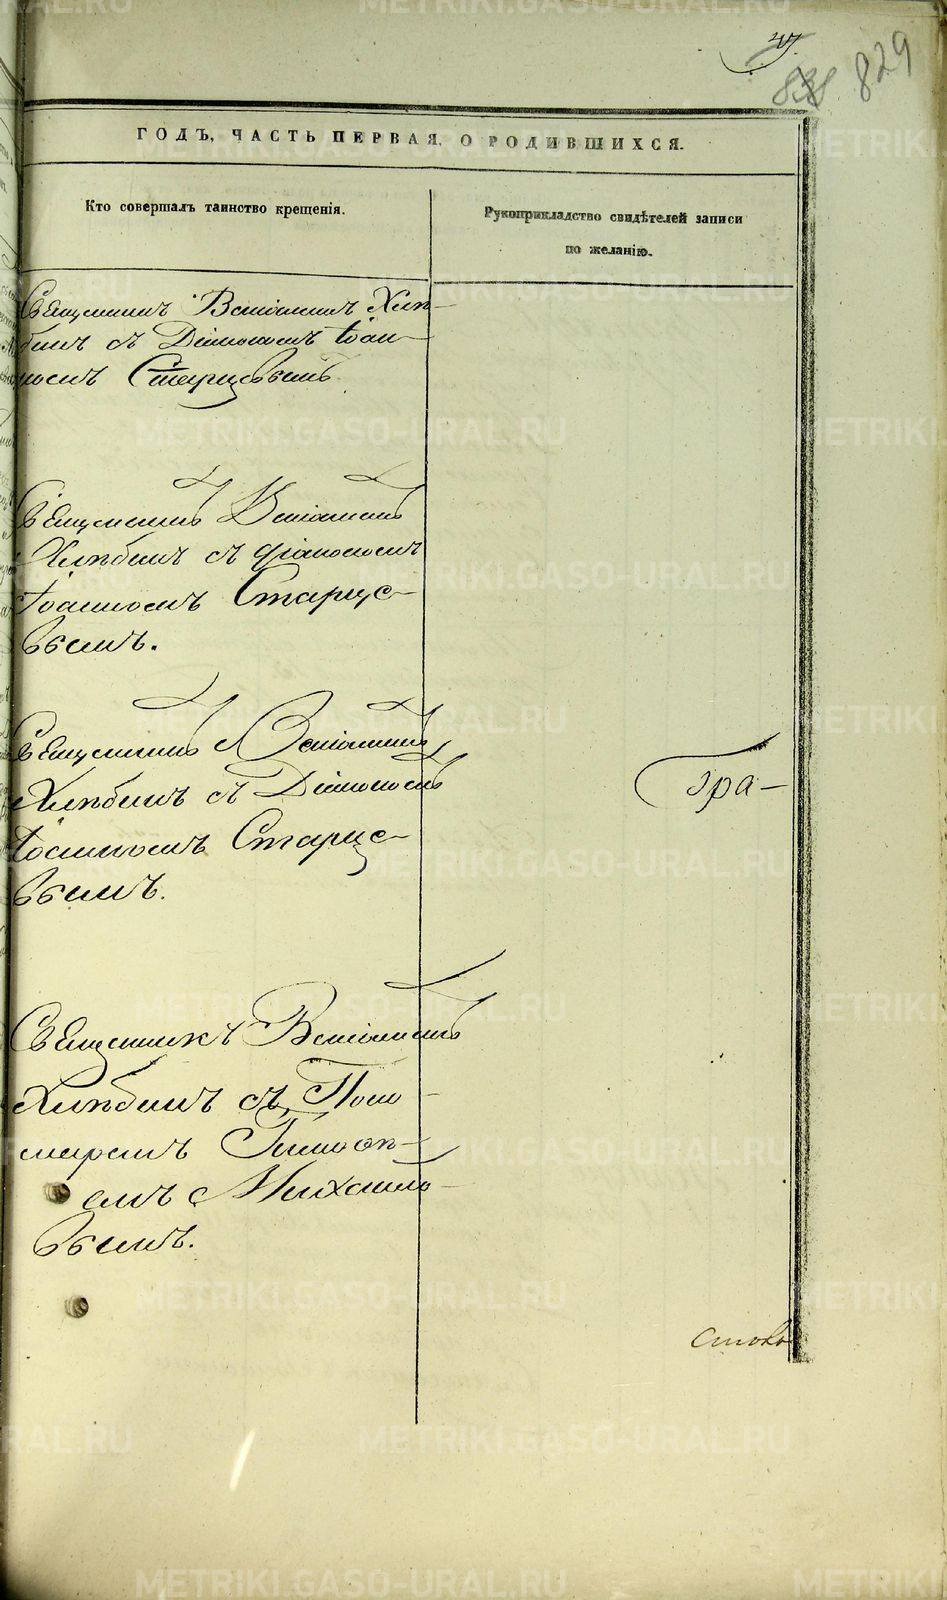 829
ГОДЪ, ЧАСТЬ ПЕРВАЯ, О РОДИВШИХСЯ.
Кто совершалъ таинство крещенія.
Рукоприкладство свидѣтелей записи
по желанію.
Священникъ Веніаминъ Хлѣ-
бинъ съ Діакономъ Іоан-
номъ Старцевымъ
Священникъ Веніаминъ
Хлѣбинъ съ діакономъ
Іоанномъ Старце-
вымъ.
Священникъ Веніаминъ
Хлѣбинъ съ Діакономъ
Іоанномъ Старце-
вымъ.
гра-
Священникъ Веніаминъ
Хлѣбинъ съ Поно-
маремъ Тимофѣ-
емъ Михайло-
вымъ.
METRIKI.GASO-URAL.RU